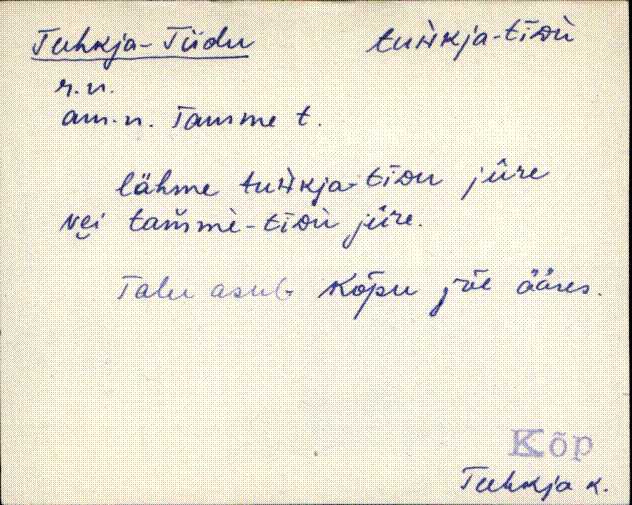 Tuhkja-Tiidu tuḧkja-tīᴅù
r.n.
am.n. Tamme t.
lähme tuḧkja-tīᴅu jûre
vei tam̆mè-tīᴅù jûre.
Talu asub Kõpu jõe ääres.
Kõp
Tuhkja k.